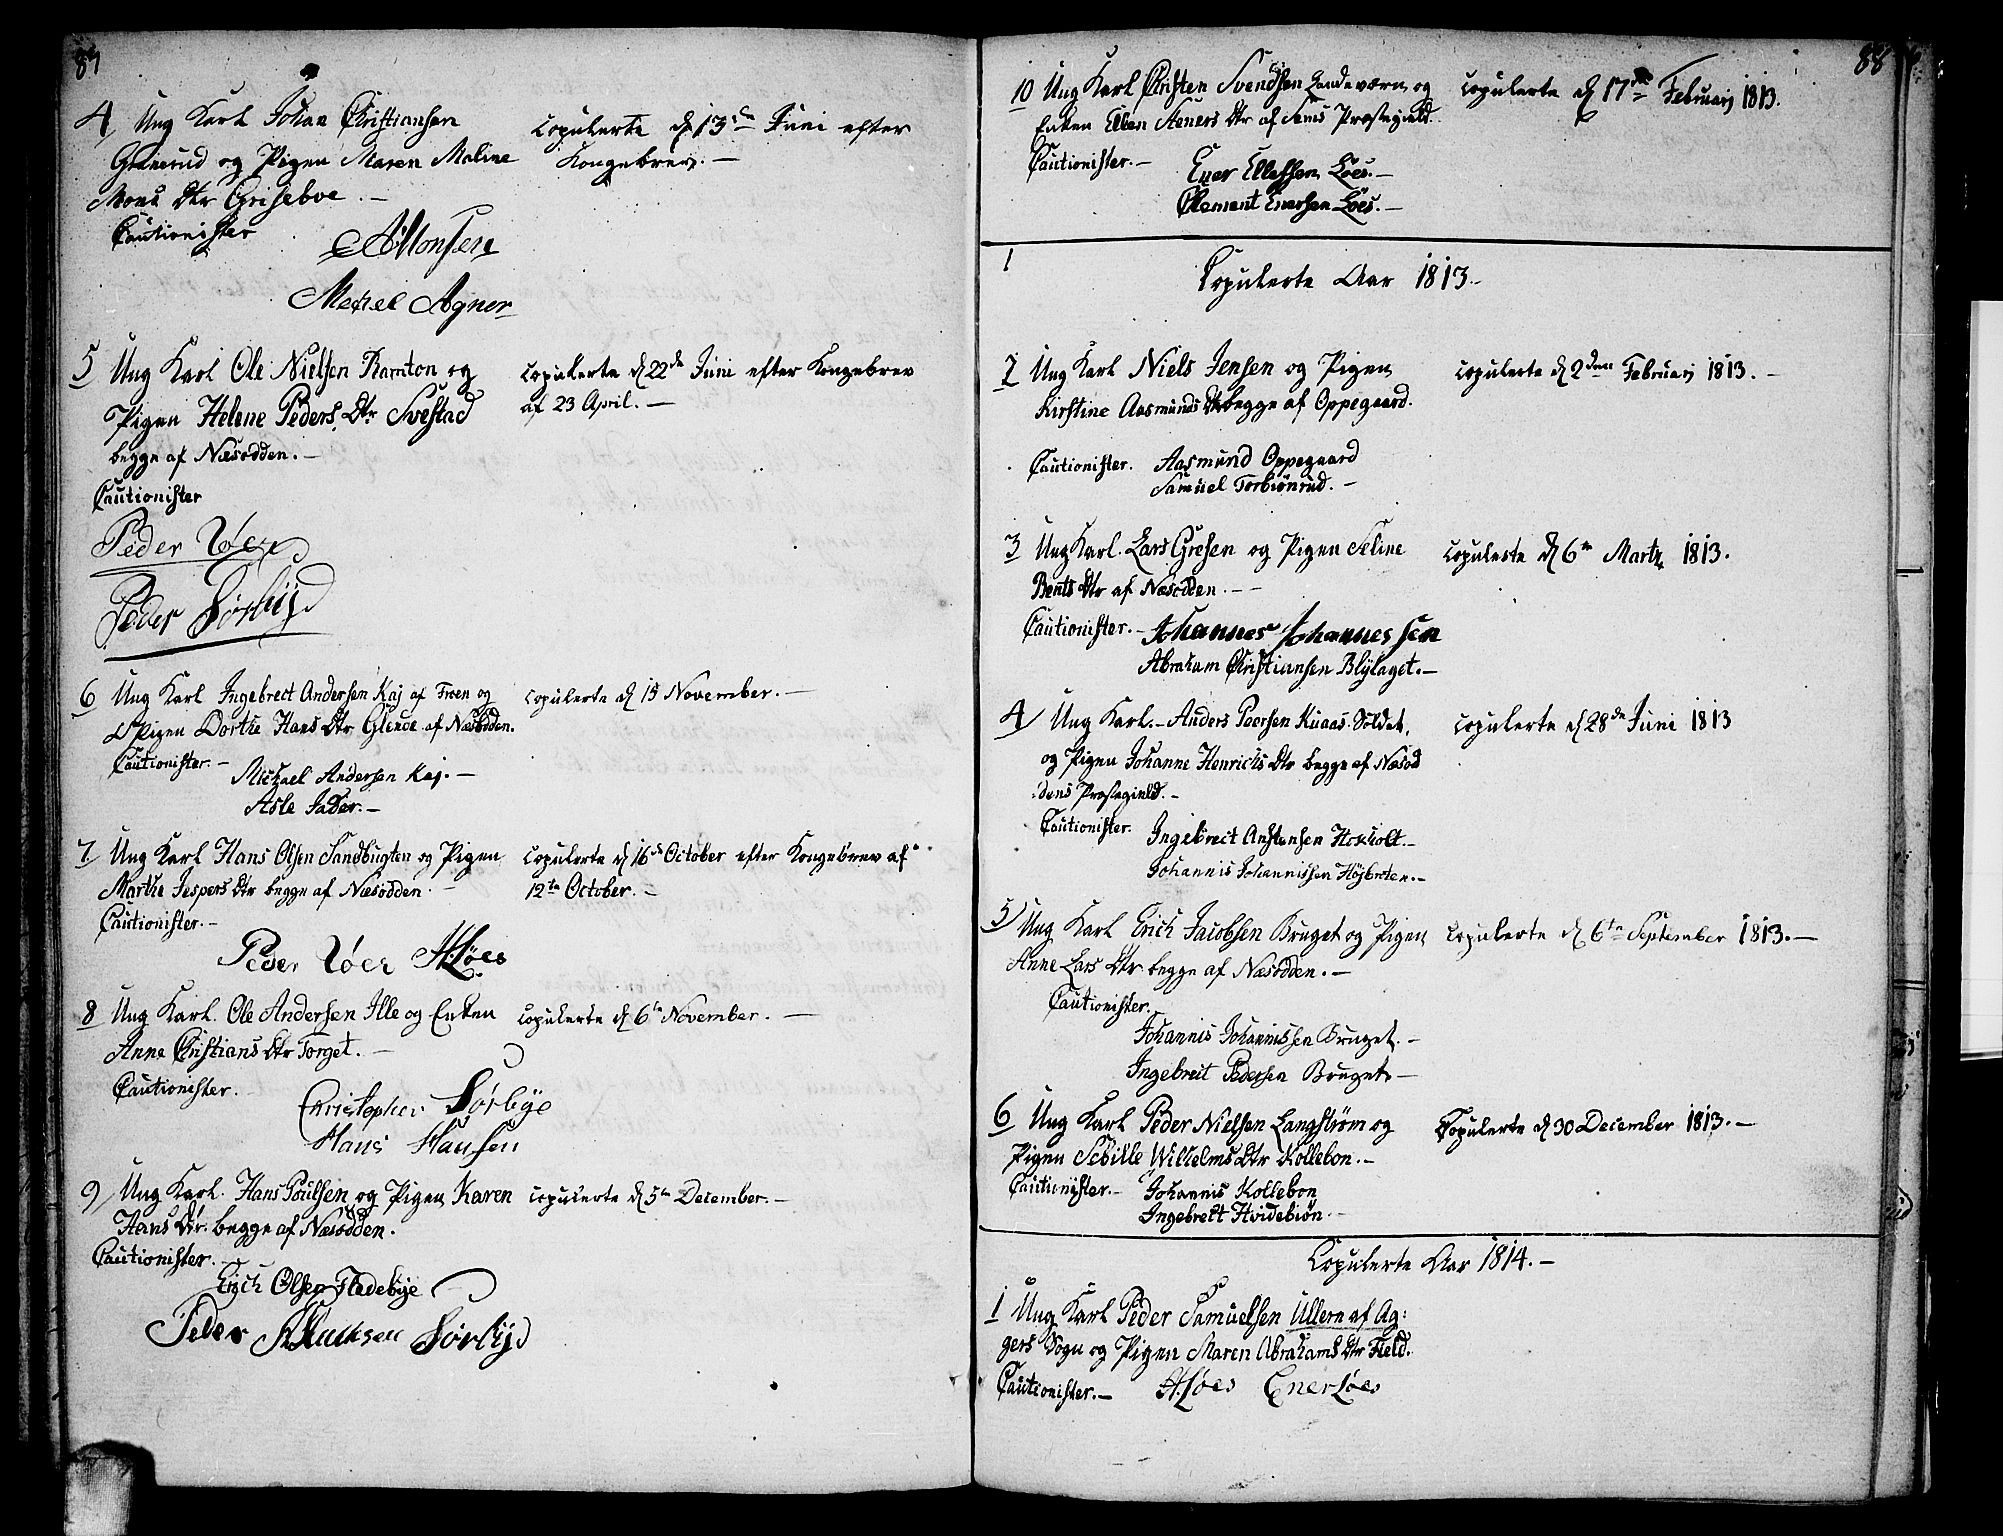 87
4 Ung Karl Johan Christiansen
og Pigen Maren Maline
Mons Dtr Griseboe. —
Copulerte d 13de Juni efter
Kongebrev. —
Cautionister
AMonsen
Agner
5 Ung Karl Ole Nielsen Ramton og
Pigen Helene Peders Dtr Svestad
begge af Næsodden. —
Copulerte d 22de Juni efter Kongebrev
af 23 April. —
Cautionister
Peder Röer
Peder Sørbÿe
6 Ung Karl Ingebrect Andersen Kaj af Froen og
Pigen Dorthe Hans Dtr Glende af Næsodden.
Copulerte d 15 November. —
Cautionister. —
Michael Andersen Kaj. —
Asle Jader. —
7 Ung Karl Hans Olsen Sandbugten og Pigen
Marthe Jespers Dtr begge af Næsodden. —
Copulerte d 16de October efter Kongebrev af
12te October. —
Cautionister. —
Peder Röer A:Løes
8 Ung Karl. Ole Andersen Ille og Enken
Anne Christians Dtr Torget. —
Copulerte d 6te November. —
Cautionister.
Christopher Sørbye
Hans Hansen
9 Ung Karl. Hans Poulsen og Pigen Karen
Hans Dtr. begge af Næsodden.
Copulerte d 5te December. —
Cautionister.
Erich Olsen Fladebye
Peder Sørbÿe
88
10 Ung Karl Christen Svendsen Landeværn og
Enken Ellen Steners Dtr af Præstegield.
Copulerte d 17de Februarj 1813.
Cautionister. —
Ener Ellefsen Løes. —
Clement Enersen Løes. —
1
Copulerte Aar 1813. —
2 Ung Karl Niels Jensen og Pigen
Kirstine Aasmunds Dtr begge af Oppegaard.
Copulerte d 2den Februarj 1813. —
Cautionister. Aasmund Oppegaard
Samuel Torbiönrud. —
3 Ung Karl. Lars Gresen og Pigen Seline
Bents Dtr af Næsodden. —
Copulerte d 6te Marts 1813.
Cautionister. — Johannes Johannessen
Abraham Christiansen Blÿlaget. —
4 Ung Karl. — Anders Peersen Knaas Soldat.
og Pigen Johanne Henrichs Dtr begge af Næsod
dens Præstegield. —
Copulerte d 28de Juni 1813
Cautionister. Ingebrect Anstensen Hoxholt. —
Johannis Johannissen Höjbroten. —
5 Ung Karl Erich Jacobsen Bruget og Pigen
Anne Lars Dtr begge af Næsodden. —
Copulerte d 6te September 1813. —
Cautionister.
Johannis Johannissen Bruget. —
Ingebreit Pedersen Bruget. —
6 Ung Karl Peder Nielsen Langstrøm og
Pigen Sebille Wilhelms Dtr Kollebon. —
Copulerte d 30 December 1813. —
Cautionister. — Johannis Kollebon
Ingebrett Hvidebiön.
Copulerte Aar 1814. —
1 Ung Karl Peder Samuelsen Ullern af Ag:
gers Sogn og Pigen Maren Abrahams Dtr Field.
Cautionister. — A:Løes Ener Løes